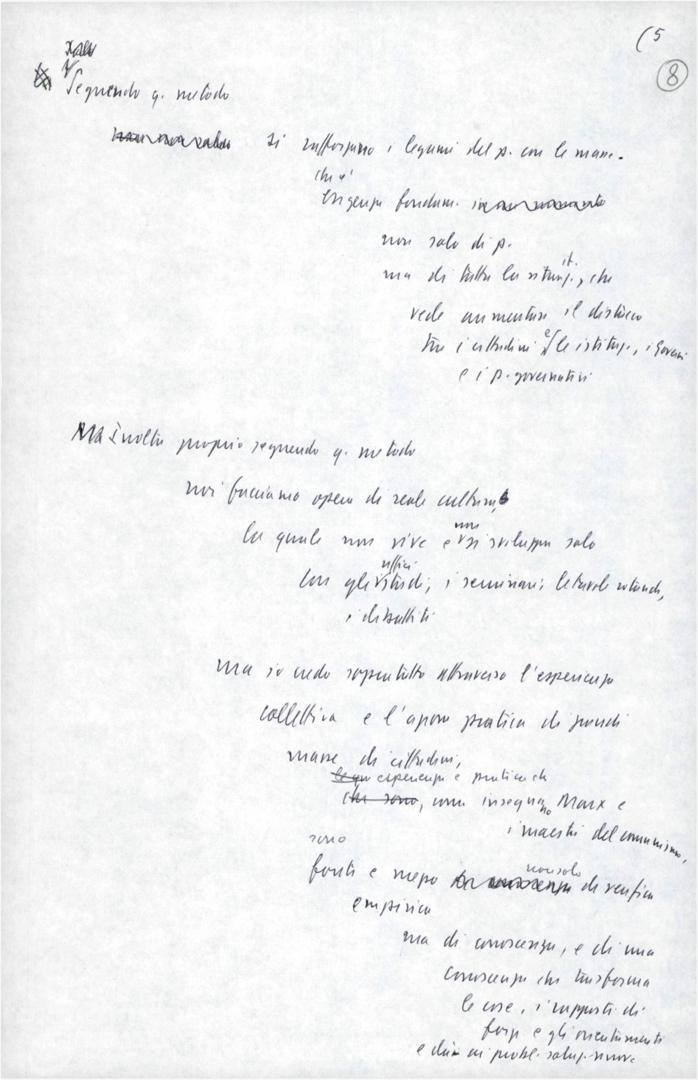 (5
8
Seguendo q. metodo
si rafforzano i legami del p. con le masse.
che è
esigenza fondam.
non solo di p.
it.
ma di tutta la situaz., che
vede aumentare il distacco
tra i cittadini e le istituz., i Governi
e i p. governativi
Ma inoltre proprio seguendo q. metodo
noi facciamo opera di reale cultura,
la quale non vive e non si sviluppa solo
con gli uffici studi, i seminari, le tavole rotonde,
i dibattiti
ma io credo soprattutto attraverso l'esperienza
collettiva e l'azione pratica di grandi
masse di cittadini,
esperienza e pratica che
che sono, come insegnano Marx e
i maestri del comunismo,
sono
fonti e mezzo non solo di verifica
empirica
ma di conoscenza, e di una
conoscenza che trasforma
le cose, i rapporti di
forza e gli orientamenti
e dà ai probl. soluz. nuove